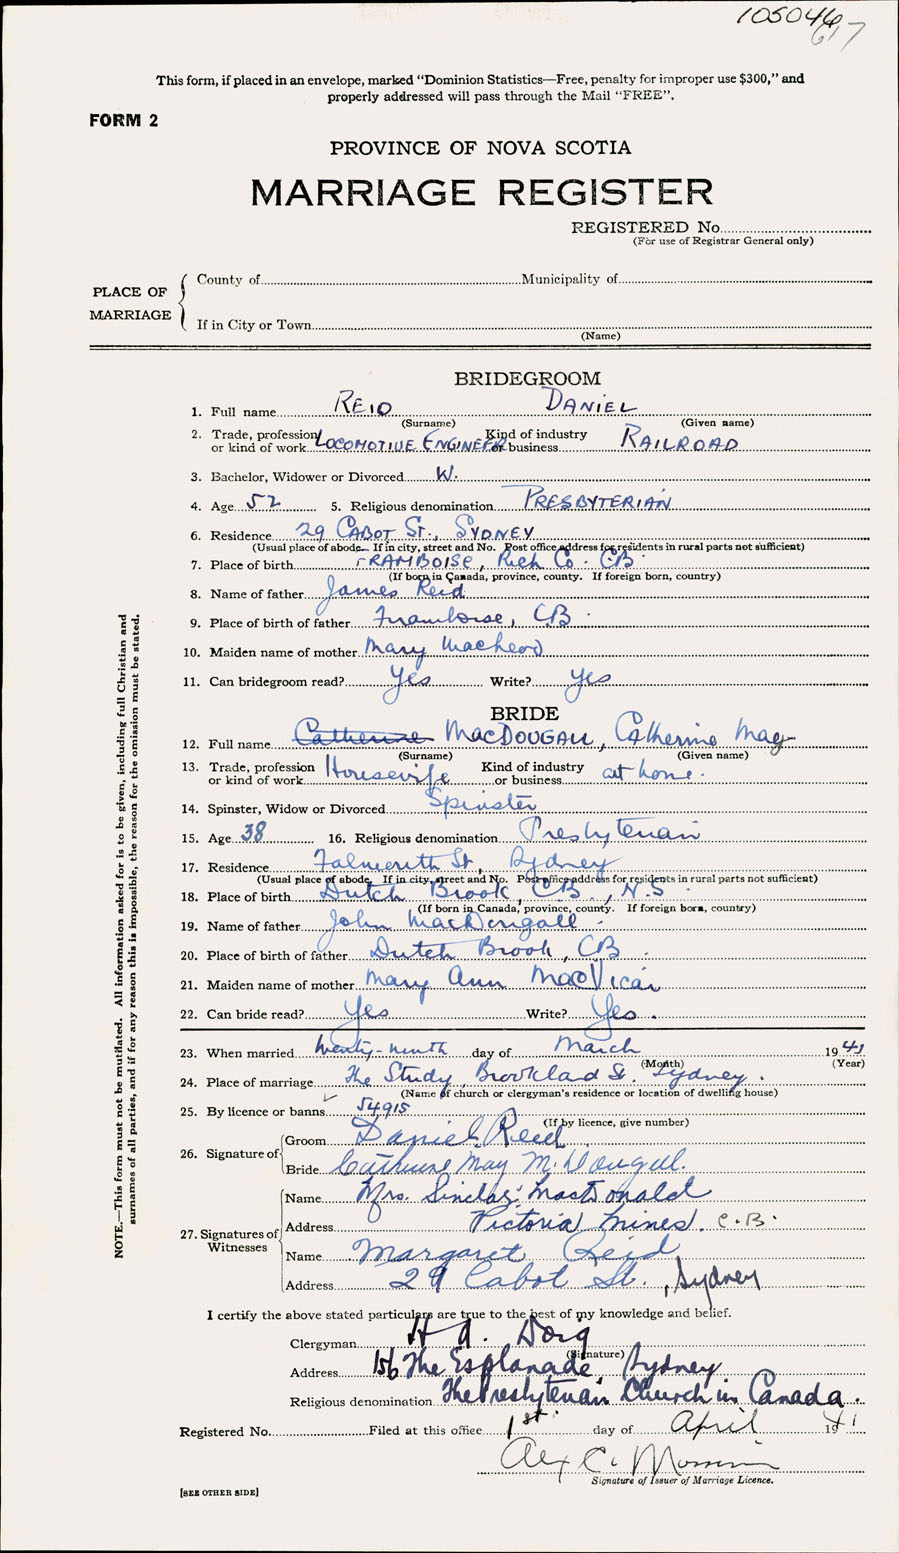 105046
617
This form, if placed in an envelope, marked "Dominion Statistics—Free, penalty for improper use $300," and
properly addressed will pass through the Mail "FREE".
FORM 2
PROVINCE OF NOVA SCOTIA
MARRIAGE REGISTER
REGISTERED No.
(For use of Registrar General only)
PLACE OF MARRIAGE
County of Municipality of
If in City or Town
(Name)
NOTE.—This form must not be mutilated. All information asked for is to be given, including full Christian and
surnames of all parties, and if for any reason this is impossible, the reason for the omission must be stated.
BRIDEGROOM
1. Full name REID DANIEL
(Surname) (Given name)
2. Trade, profession or kind of work LOCOMOTIVE ENGINEER Kind of industry or business RAILROAD
3. Bachelor, Widower or Divorced W.
4. Age 52 5. Religious denomination PRESBYTERIAN
6. Residence 29 CABOT ST., SYDNEY
(Usual place of abode. If in city, street and No. Post office address for residents in rural parts not sufficient)
7. Place of birth FRAMBOISE, Rich Co. CB
(If born in Canada, province, county. If foreign born, country)
8. Name of father James Reid
9. Place of birth of father Framboise, CB
10. Maiden name of mother Mary MacLeod
11. Can bridegroom read? Yes Write? Yes
BRIDE
12. Full name Catherine MacDOUGALL, Catherine May
(Surname) (Given name)
13. Trade, profession or kind of work Housewife Kind of industry or business at home.
14. Spinster, Widow or Divorced Spinster
15. Age 38 16. Religious denomination Presbyterian
17. Residence Falmouth St., Sydney
(Usual place of abode. If in city, street and No. Post office address for residents in rural parts not sufficient)
18. Place of birth Dutch Brook, CB., N.S.
(If born in Canada, province, county. If foreign born, country)
19. Name of father John MacDougall
20. Place of birth of father Dutch Brook, CB
21. Maiden name of mother Mary Ann MacVicar
22. Can bride read? Yes Write? Yes.
23. When married twenty-ninth day of March 1941
(Month) (Year)
24. Place of marriage The Study, Brookland St. Sydney.
(Name of church or clergyman's residence or location of dwelling house)
25. By licence or banns 54915
(If by licence, give number)
26. Signature of
Groom Daniel Reid
Bride Catherine May McDougall.
27. Signatures of Witnesses
Name Mrs. Sinclair MacDonald
Address Victoria Mines. C.B.
Name Margaret Reid
Address 29 Cabot St., Sydney
I certify the above stated particulars are true to the best of my knowledge and belief.
Clergyman H A.
(Signature)
Address 156 The Esplanade, Sydney
Religious denomination The Presbyterian Church in Canada.
Registered No. Filed at this office 1st. day of April 1941
Alex C.
Signature of Issuer of Marriage Licence.
[SEE OTHER SIDE]